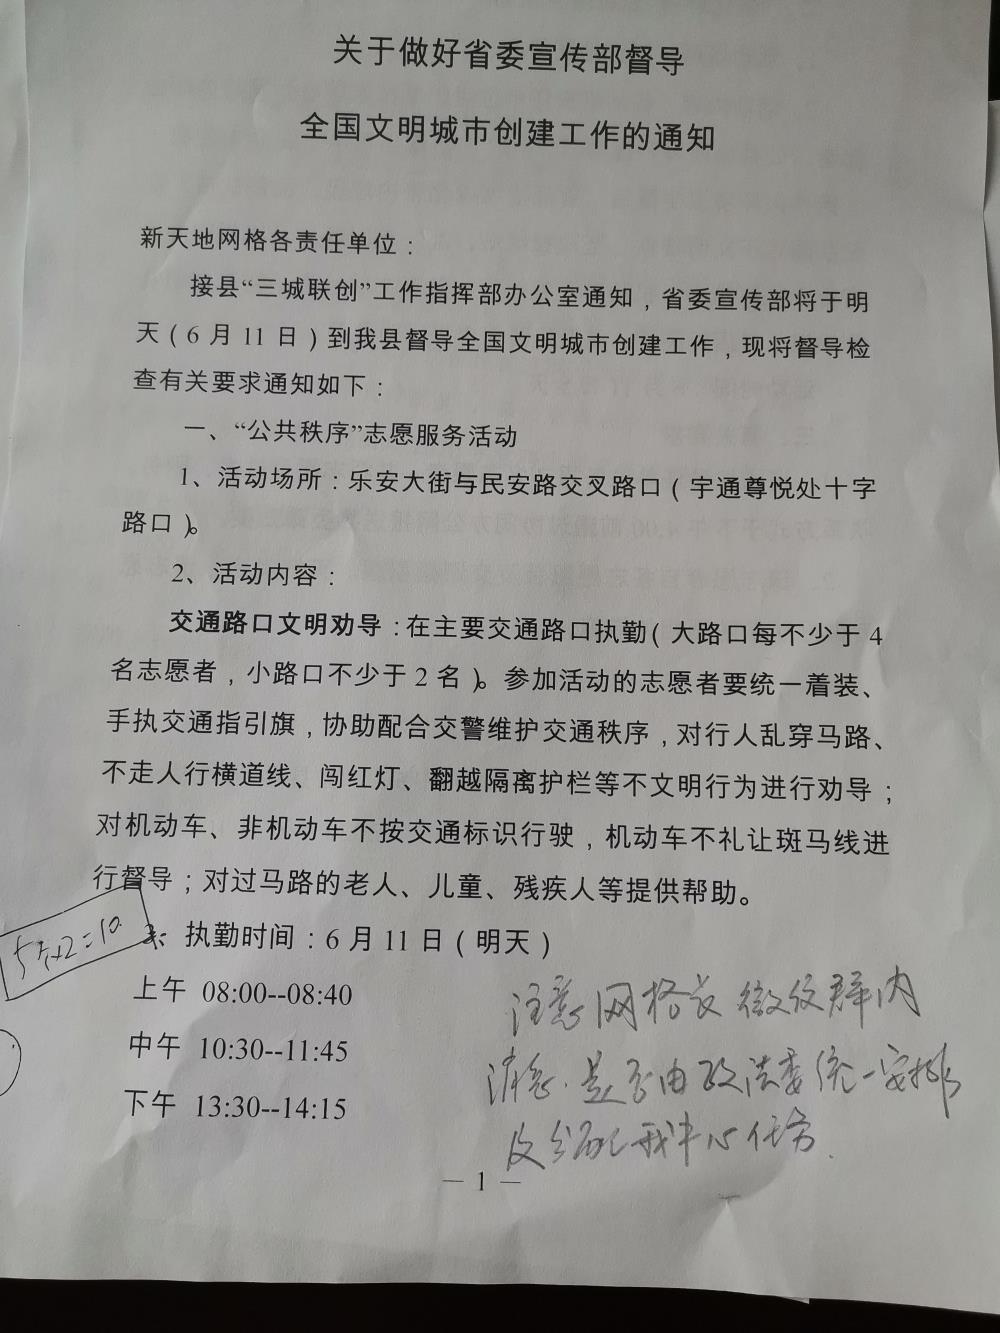 关于做好省委宣传部督导
全国文明城市创建工作的通知
新天地网格各责任单位：
接县“三城联创”工作指挥部办公室通知，省委宣传部将于明
天（6 月 11 日）到我县督导全国文明城市创建工作，现将督导检
查有关要求通知如下：
一、“公共秩序”志愿服务活动
1、活动场所：乐安大街与民安路交叉路口（宇通尊悦处十字
路口）。
2、活动内容：
交通路口文明劝导：在主要交通路口执勤（大路口每不少于 4
名志愿者，小路口不少于 2 名）。参加活动的志愿者要统一着装、
手执交通指引旗，协助配合交警维护交通秩序，对行人乱穿马路、
不走人行横道线、闯红灯、翻越隔离护栏等不文明行为进行劝导；
对机动车、非机动车不按交通标识行驶，机动车不礼让斑马线进
行督导；对过马路的老人、儿童、残疾人等提供帮助。
3、执勤时间：6 月 11 日（明天）
上午 08:00--08:40
中午 10:30--11:45
下午 13:30--14:15
注意网格长微信群内
消息.是否由政法委统一安排
及分配我中心任务.
— 1 —